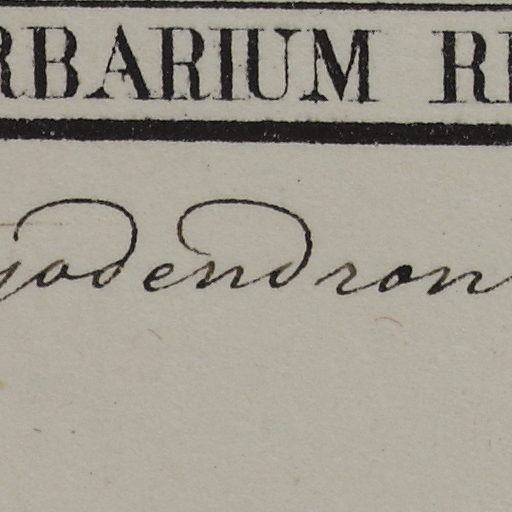 RBARIUM RE
yodendron